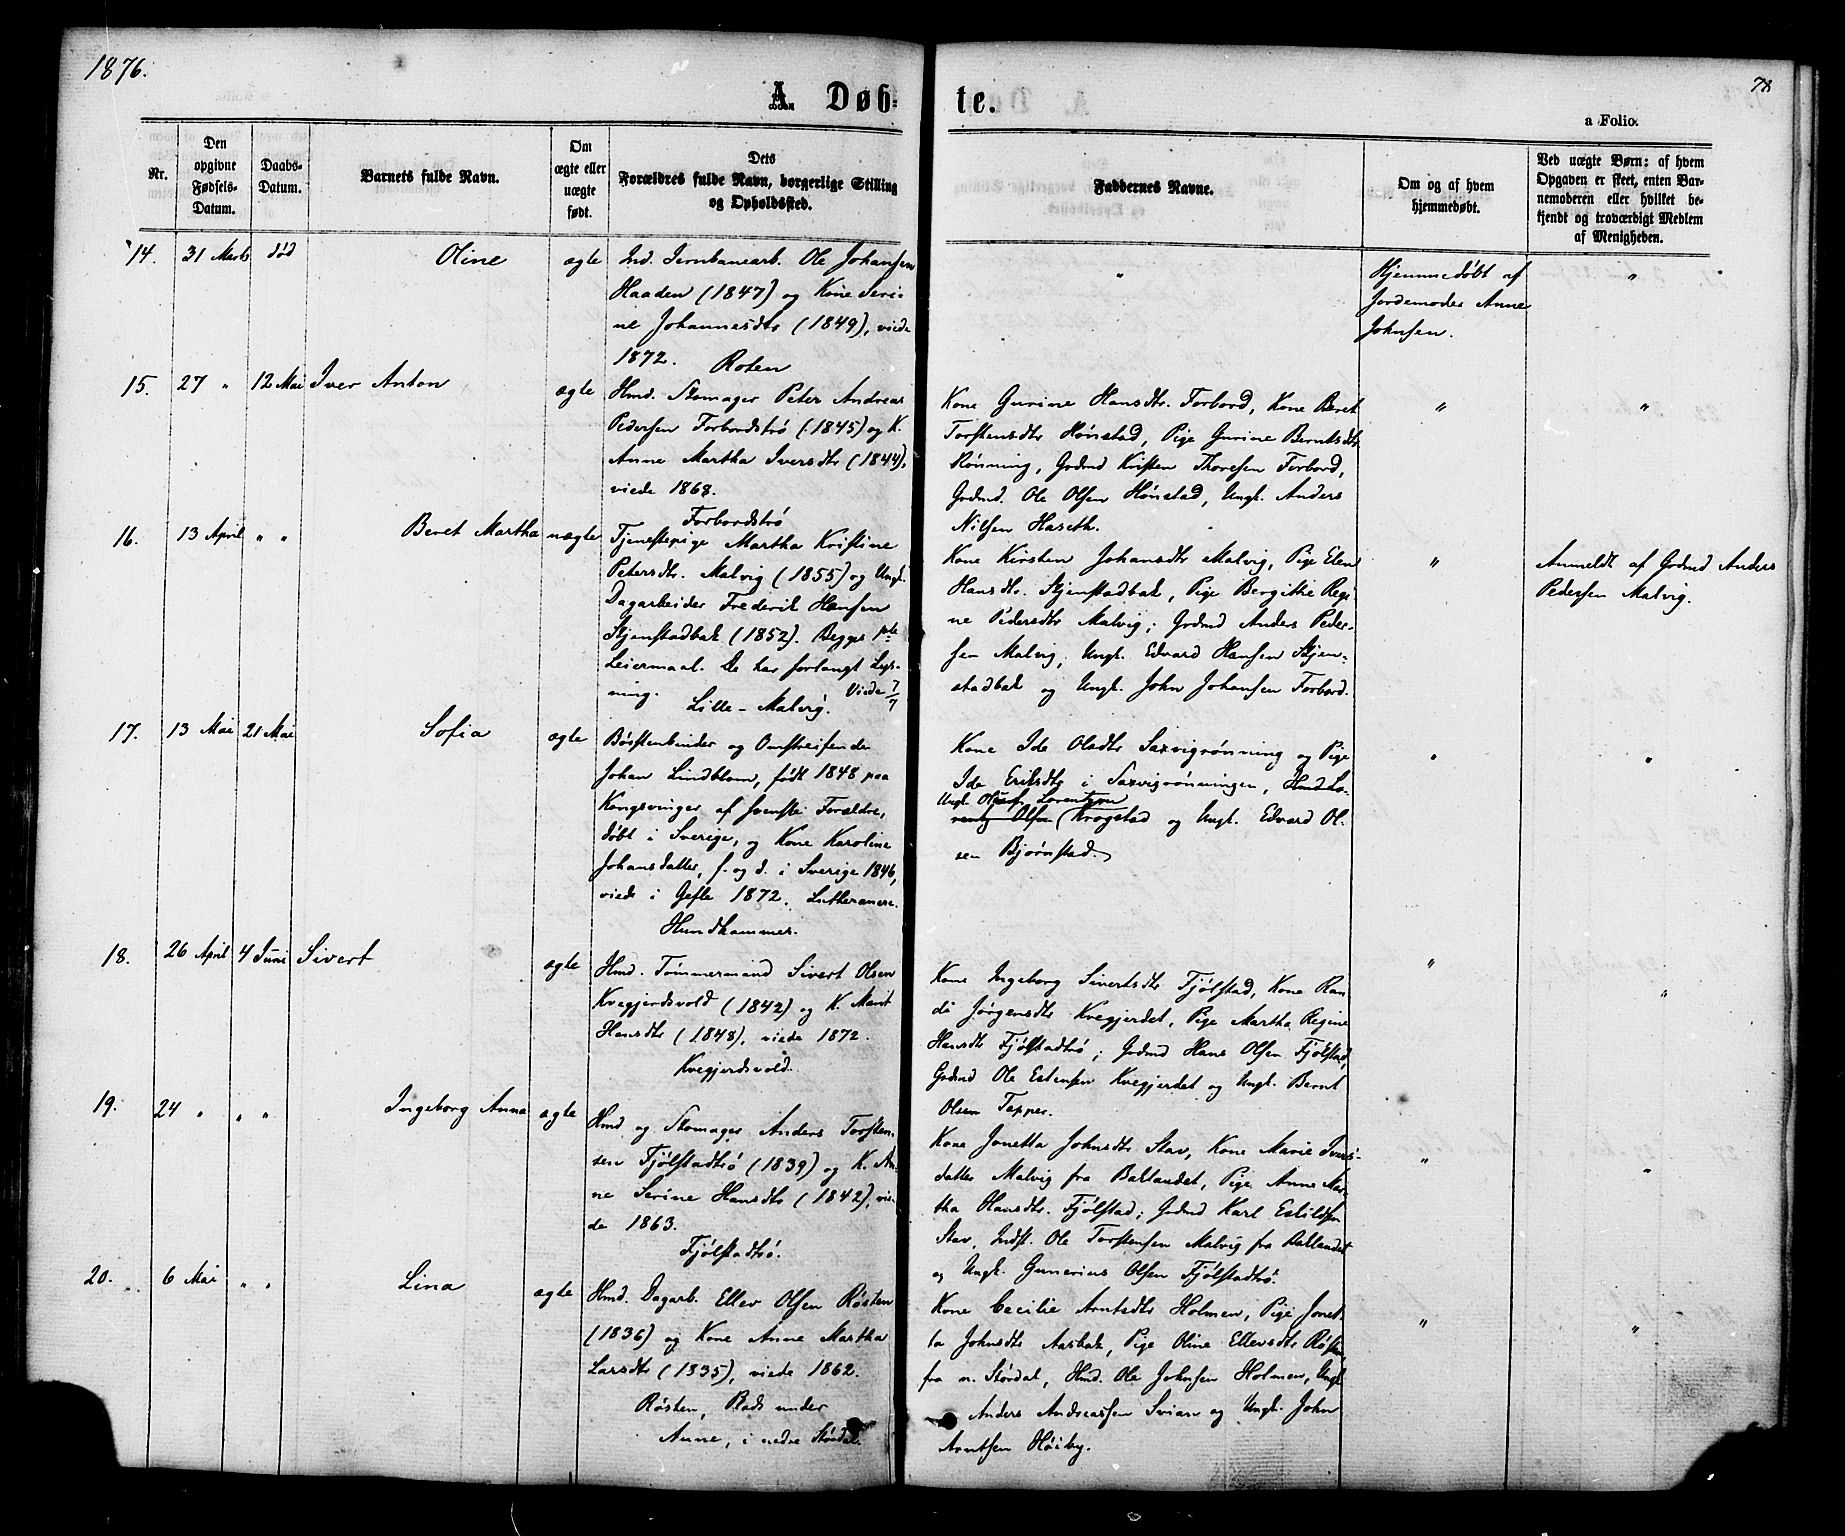 1876.
78
A. Døb-
te.
a Folio.
Nr.
Den opgivne Fødsels-Datum.
Daabs-Datum.
Barnets fulde Navn.
Om ægte eller uægte født.
Dets
Forældres fulde Navn, borgerlige Stilling
og Opholdssted.
Faddernes Navne.
Om og af hvem
hjemmedøbt.
Ved uægte Børn: af hvem
Opgaven er skeet, enten Bar-
nemoderen eller hvilket be-
kjendt og troværdigt Medlem
af Menigheden.
14. 31 Marts død Oline ægte
Ind. Jernbanearb. Ole Johansen
Haaden (1847) og Kone Seri-
ne Johannesdtr (1849), viede
1872. Roten
"
Hjemmedøbt af
Jordemoder Anne
Johnsen.
"
15. 27 " 12 Mai Iver Anton ægte
Hmd. Skomager Peter Andreas
Pedersen Forbordstrø (1845) og K.
Anne Martha Iversdtr (1844),
viede 1868.
Forbordstrø
Kone Gurine Hansdtr. Forbord, Kone Beret
Torstensdtr Hønstad, Pige Gurine Berntsdtr
Rønning, Grdmd Kristen Thoresen Forbord,
Grdmd. Ole Olsen Hønstad, Ungk. Anders
Nilsen Haseth.
"
"
16. 13 April " " Beret Martha uægte
Tjenestepige Martha Kristine
Petersdtr. Malvig (1855) og Ungk.
Dagarbeider Frederik Hansen
Stjenstadbak (1852). Begges 1ste
Leiermaal. De har forlangt Lys-
ning. Viede 7/7
Lille-Malvig.
Kone Kirsten Johansdtr Malvig, Pige Elen
Hansdtr. Stjenstadbak, Pige Bergitte Regi-
ne Pedersdtr Malvig; Grdmd Anders Peder-
sen Malvig, Ungk. Edvard Hansen Stjen-
stadbak og Ungk. John Johansen Forbord.
"
Anmeldt af Grdmd Anders
Pedersen Malvig.
17. 13 Mai 21 Mai Sofia ægte
Børstenbinder og Omstreifende
Johan Lindblom, født 1848 paa
Kongsvinger af svenske Forældre,
døbt i Sverige, og Kone Karoline
Johansdatter, f. og d. i Sverige 1846,
viede i Gefle 1872. Lutheranere.
Hundhammer.
Kone Ide Olsdtr Saxvigrønning og Pige
Ida Eriksdtr i Saxvigrønningen, Hmd Lo-
Ungk. Lorentzen
rentz Olsen Krogstad og Ungk. Edvard Ol-
sen Bjørnstad.
"
"
18. 26 April 4 Juni Sivert ægte
Hmd. Tømmermand Sivert Olsen
Kvegjerdsvold (1842) og K. Marit
Hansdtr (1848), viede 1872.
Kvegjerdsvold.
Kone Ingeborg Sivertsdtr Fjølstad, Kone Ran-
di Jørgensdtr Kvegjerdet, Pige Martha Regine
Hansdtr Fjølstadtrø; Grdmd Hans Olsen Fjølstad,
Grdmd Ole Estensen Kvegjerdet og Ungk. Bernt
Olsen Tepper.
"
"
19. 24 " " " Ingeborg Anna ægte
Hmd og Skomager Anders Torsten-
sen Fjølstadtrø (1839) og K. An-
ne Serine Hansdtr (1842), vie-
de 1863.
Fjølstadtrø.
Kone Jonetta Johnsdtr Stav, Kone Marie Ivers-
datter Malvig fra Ballandet, Pige Anne Mar-
tha Hansdtr. Fjølstad; Grdmd Karl Eskildsen
Stav, Indst. Ole Torstensen Malvig fra Ballandet
og Ungk. Gunerius Olsen Fjølstadtrø.
"
"
20. 6 Mai " " Lina ægte
Hmd. Dagarb. Ellev Olsen Røsten
(1836) og Kone Anne Martha
Larsdtr (1835), viede 1862.
Røsten, Plads under
Aune, i nedre Størdal.
Kone Cecilie Arntsdtr Holmen, Pige Jonet-
ta Johnsdtr Aasbak, Pige Oline Ellevsdtr Røsten
fra n. Størdal, Hmd. Ole Johnsen Holmen, Ungk.
Anders Andreassen Svian og Ungk. John
Arntsen Høiby.
"
"